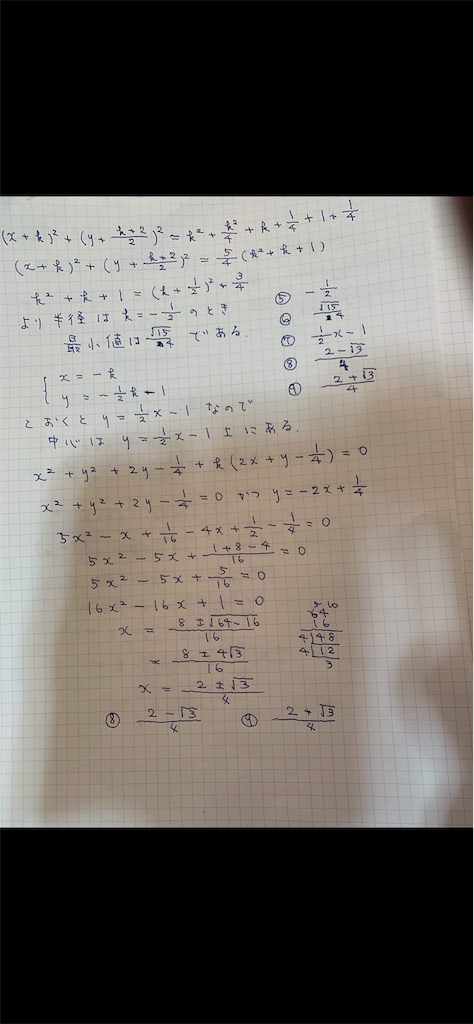 (x+k)² + (y+\frac{k+2}{2})² = k² + \frac{k²}{4} + k + \frac{1}{4} + 1 + \frac{1}{4}
(x+k)² + (y+\frac{k+2}{2})² = \frac{5}{4}(k²+k+1)
k² + k + 1 = (k+\frac{1}{2})² + \frac{3}{4}
より半径は k = -\frac{1}{2} のとき
最小値は \frac{√15}{4} である.
⑤ -\frac{1}{2}
⑥ \frac{√15}{4}
⑦ \frac{1}{2}x - 1
⑧ \frac{2-√3}{4}
⑨ \frac{2+√3}{4}
{ x = -k
y = -\frac{1}{2}k - 1
とおくと y = \frac{1}{2}x - 1 なので
中心は y = \frac{1}{2}x - 1 上にある.
x² + y² + 2y - \frac{1}{4} + k(2x + y - \frac{1}{4}) = 0
x² + y² + 2y - \frac{1}{4} = 0 かつ y = -2x + \frac{1}{4}
5x² - x + \frac{1}{16} - 4x + \frac{1}{2} - \frac{1}{4} = 0
5x² - 5x + \frac{1+8-4}{16} = 0
5x² - 5x + \frac{5}{16} = 0
16x² - 16x + 1 = 0
x = \frac{8±√64-16}{16}
= \frac{8±4√3}{16}
x = \frac{2±√3}{4}
64
16
4 48
4 12
3
⑧ \frac{2-√3}{4} ⑨ \frac{2+√3}{4}